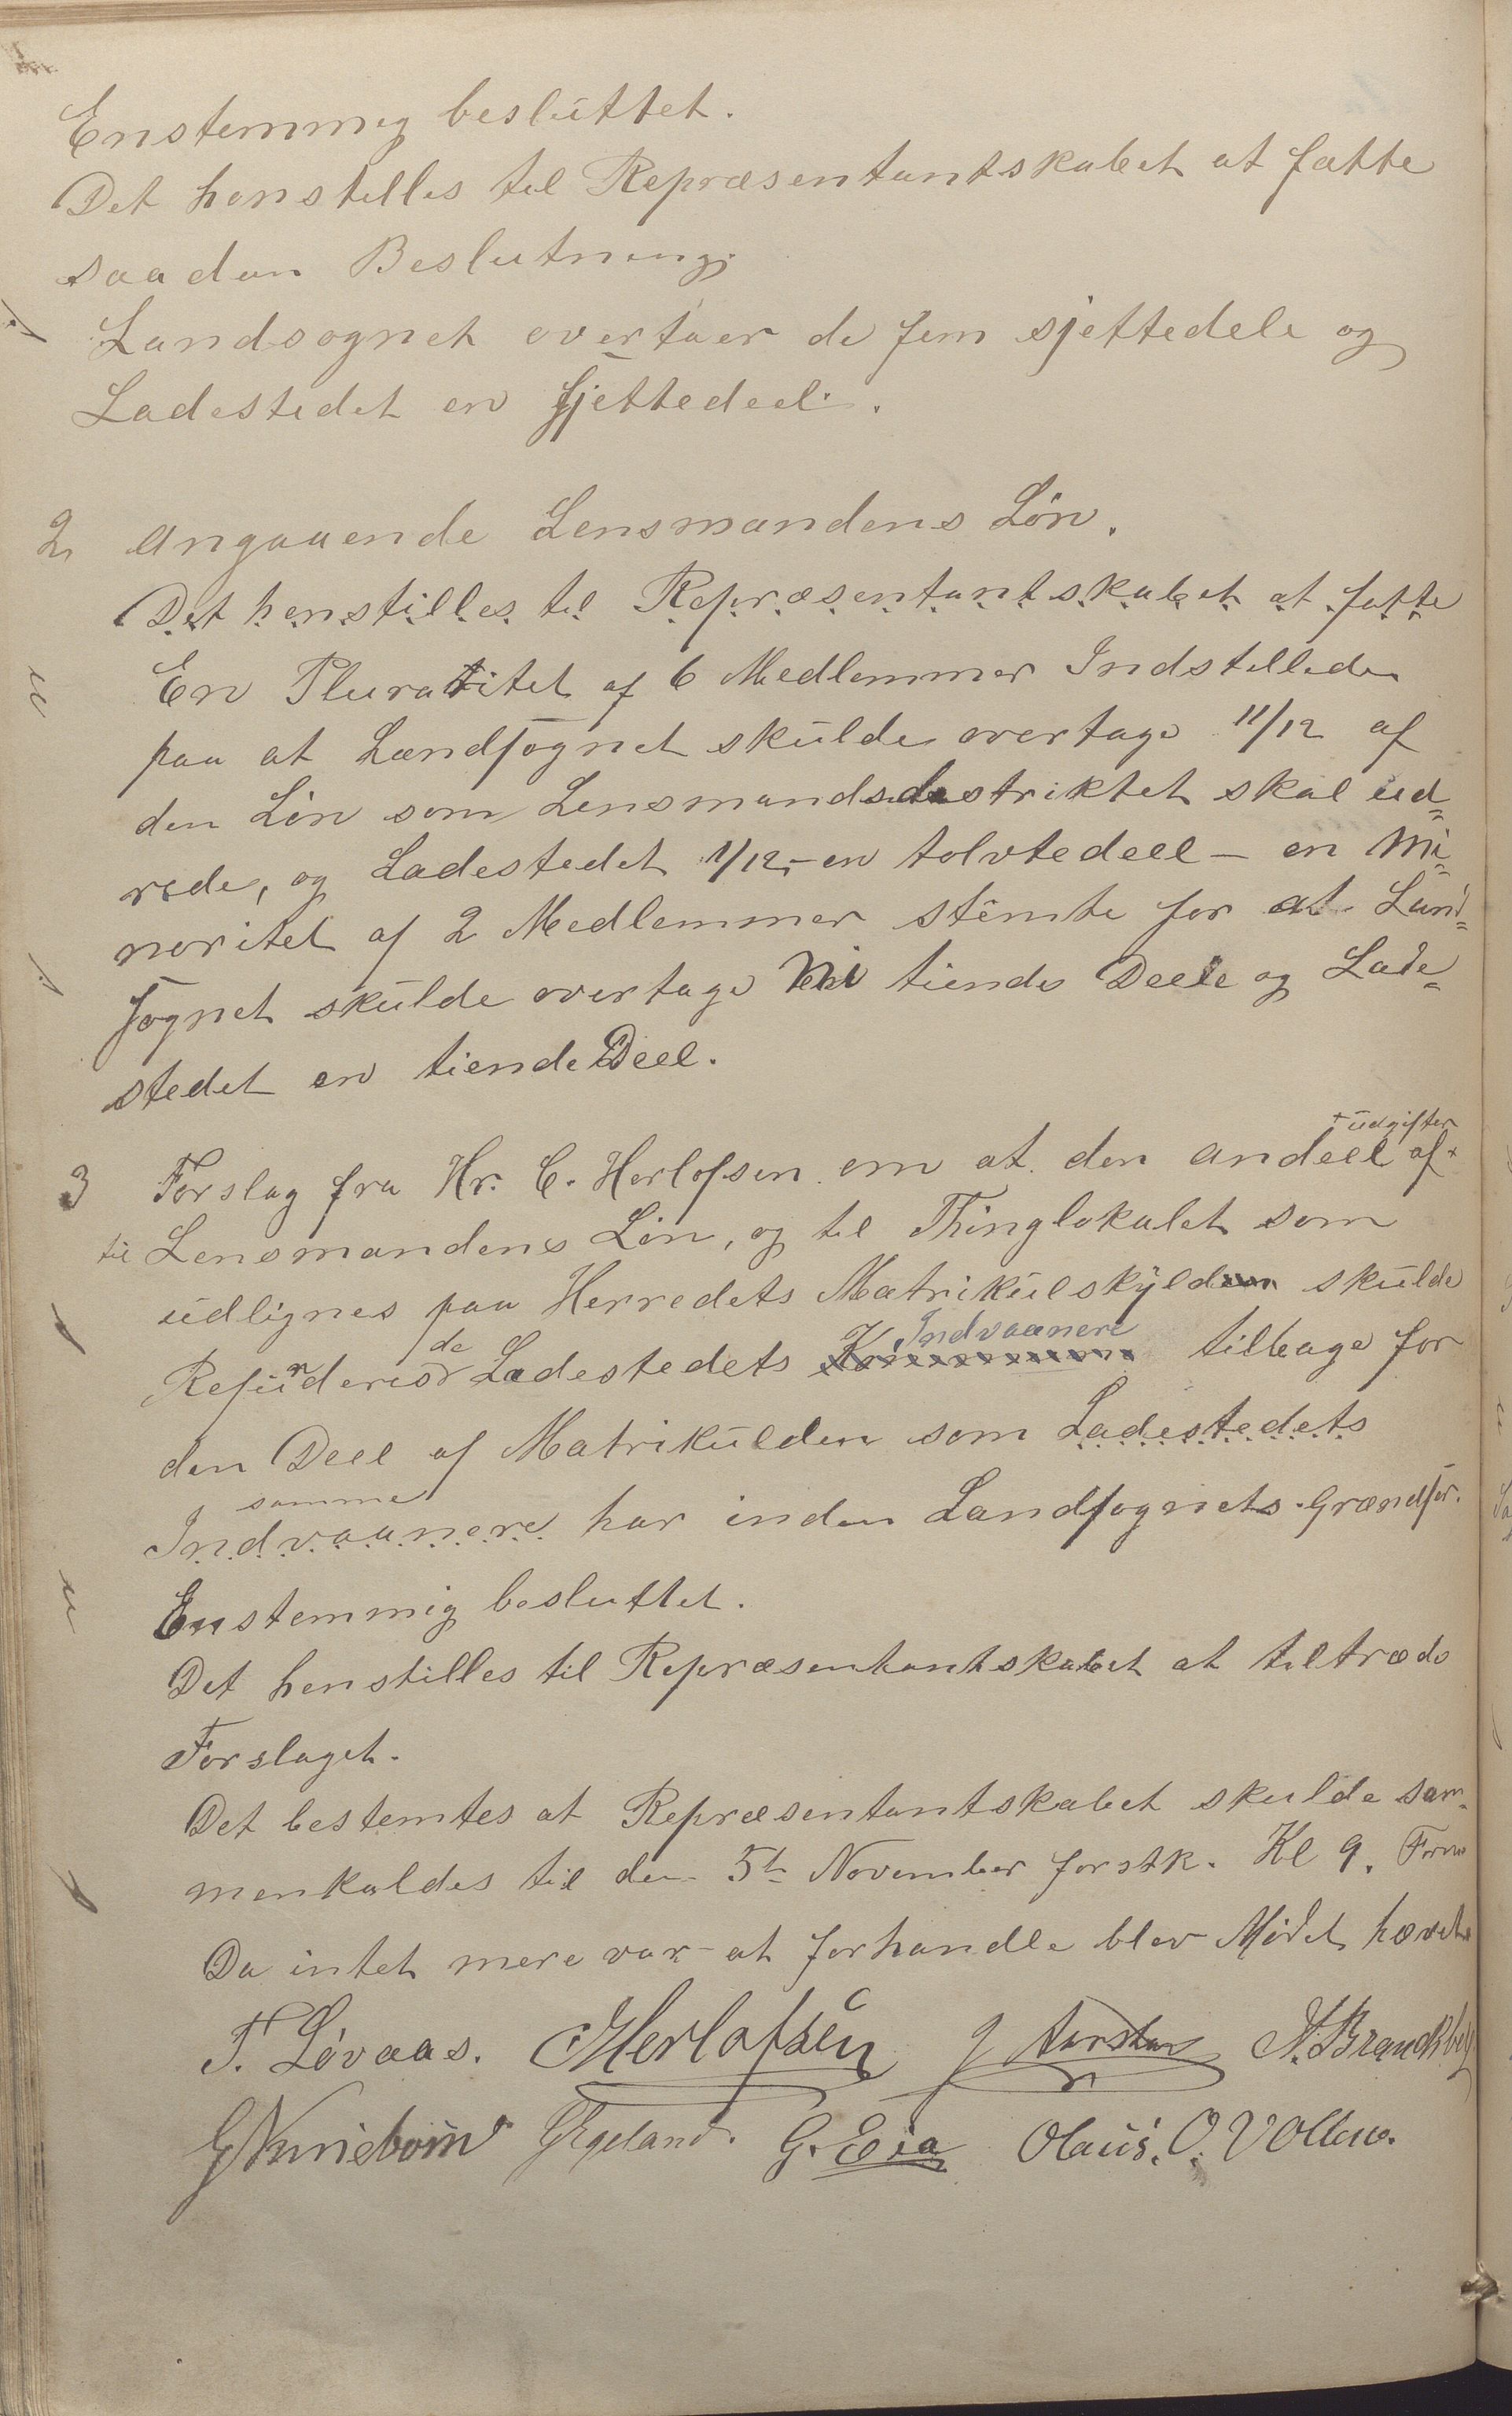 Enstemmig besluttet.
Det henstilles til Repræsentantskabet at fatte
saadan Beslutning.
Landsognet overtaer de fem sjettedele og
Ladestedet en sjettedeel.
2, Angaaende Lensmandens Løn.
Det henstilles til Repræsentantskabet at fatte
En Pluralitet af 6 Medlemmer Indstillede
paa at Landsognet skulde overtage 11/12 af
den Løn som Lensmandsdestriktet skal ud=
rede, og Ladestedet 1/12, - en tolvtedeel - en Mi=
noritet af 2 Medlemmer stemte for at Land=
sognet skulde overtage ni tiende Deele og Lade=
stedet en tiende Deel.
+ udgifter
3 Forslag fra Hr. C. Herlofsen om at den Andeel af +
til Lensmandens Løn, og til Thinglokalet som
udlignes paa Herredets Matrikulskyld skulde
de Indvaanere
Refunderes Ladestedets tilbage for
den Deel af Matrikulden som Ladestedets
samme
Indvaanere har inden Landsognets Grændser.
Enstemmig besluttet.
Det henstilles til Repræsentantskabet at tiltræde
Forslaget.
Det bestemtes at Repræsentantskabet skulde sam=
menkaldes til den 5te November forstk. Kl 9. Form
Da intet mere var at forhandle blev Mødet hævet
T. Løvaas. CHerlofsen J Aarstar
GEgeland. G. Eia Olaus. O. Vollen.